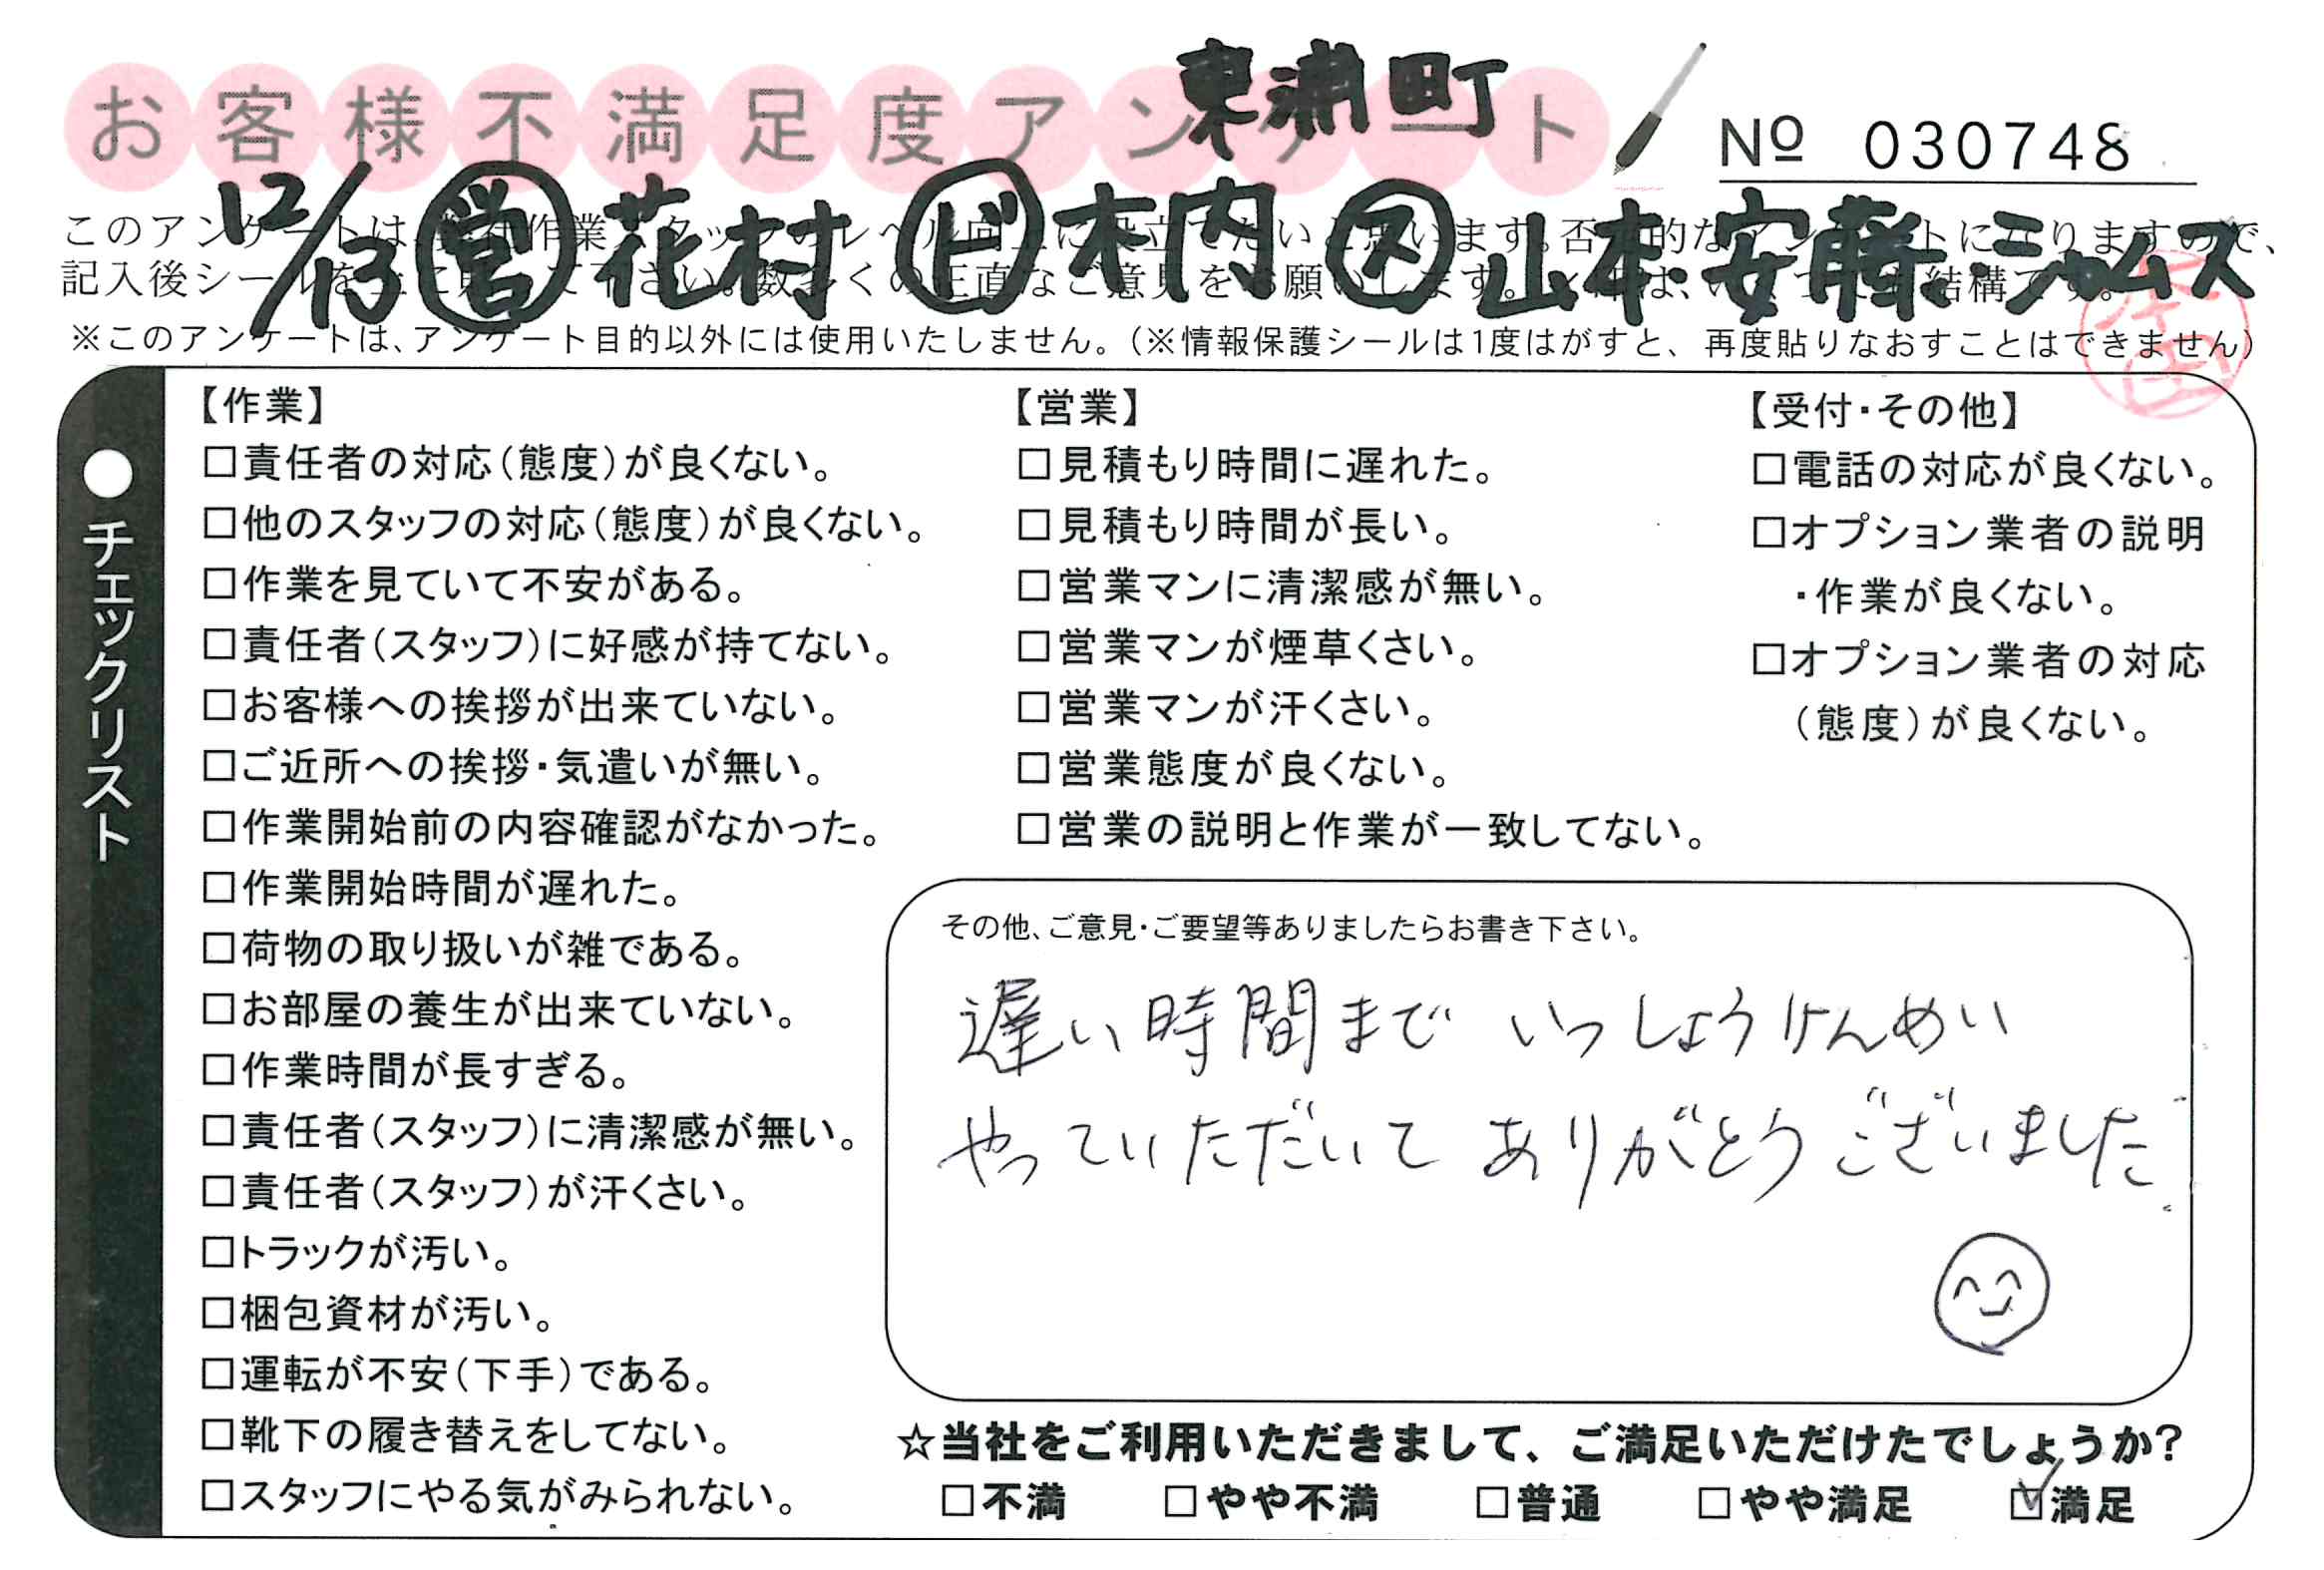 東浦町
お客様不満足度アンケート
№ 030748
12/13 営 花村 ビ 木内 ス 山本・安藤・ジャムス
このアンケートは、
記入後シールを
※このアンケートは、アンケート目的以外には使用いたしません。(※情報保護シールは1度はがすと、再度貼りなおすことはできません)
●チェックリスト
【作業】
□責任者の対応(態度)が良くない。
□他のスタッフの対応(態度)が良くない。
□作業を見ていて不安がある。
□責任者(スタッフ)に好感が持てない。
□お客様への挨拶が出来ていない。
□ご近所への挨拶・気遣いが無い。
□作業開始前の内容確認がなかった。
□作業開始時間が遅れた。
□荷物の取り扱いが雑である。
□お部屋の養生が出来ていない。
□作業時間が長すぎる。
□責任者(スタッフ)に清潔感が無い。
□責任者(スタッフ)が汗くさい。
□トラックが汚い。
□梱包資材が汚い。
□運転が不安(下手)である。
□靴下の履き替えをしてない。
□スタッフにやる気がみられない。
【営業】
□見積もり時間に遅れた。
□見積もり時間が長い。
□営業マンに清潔感が無い。
□営業マンが煙草くさい。
□営業マンが汗くさい。
□営業態度が良くない。
□営業の説明と作業が一致してない。
【受付・その他】
□電話の対応が良くない。
□オプション業者の説明
・作業が良くない。
□オプション業者の対応
(態度)が良くない。
その他、ご意見・ご要望等ありましたらお書き下さい。
遅い時間まで いっしょうけんめい
やっていただいて ありがとうございました。
☆当社をご利用いただきまして、ご満足いただけたでしょうか?
□不満 □やや不満 □普通 □やや満足 ☑満足